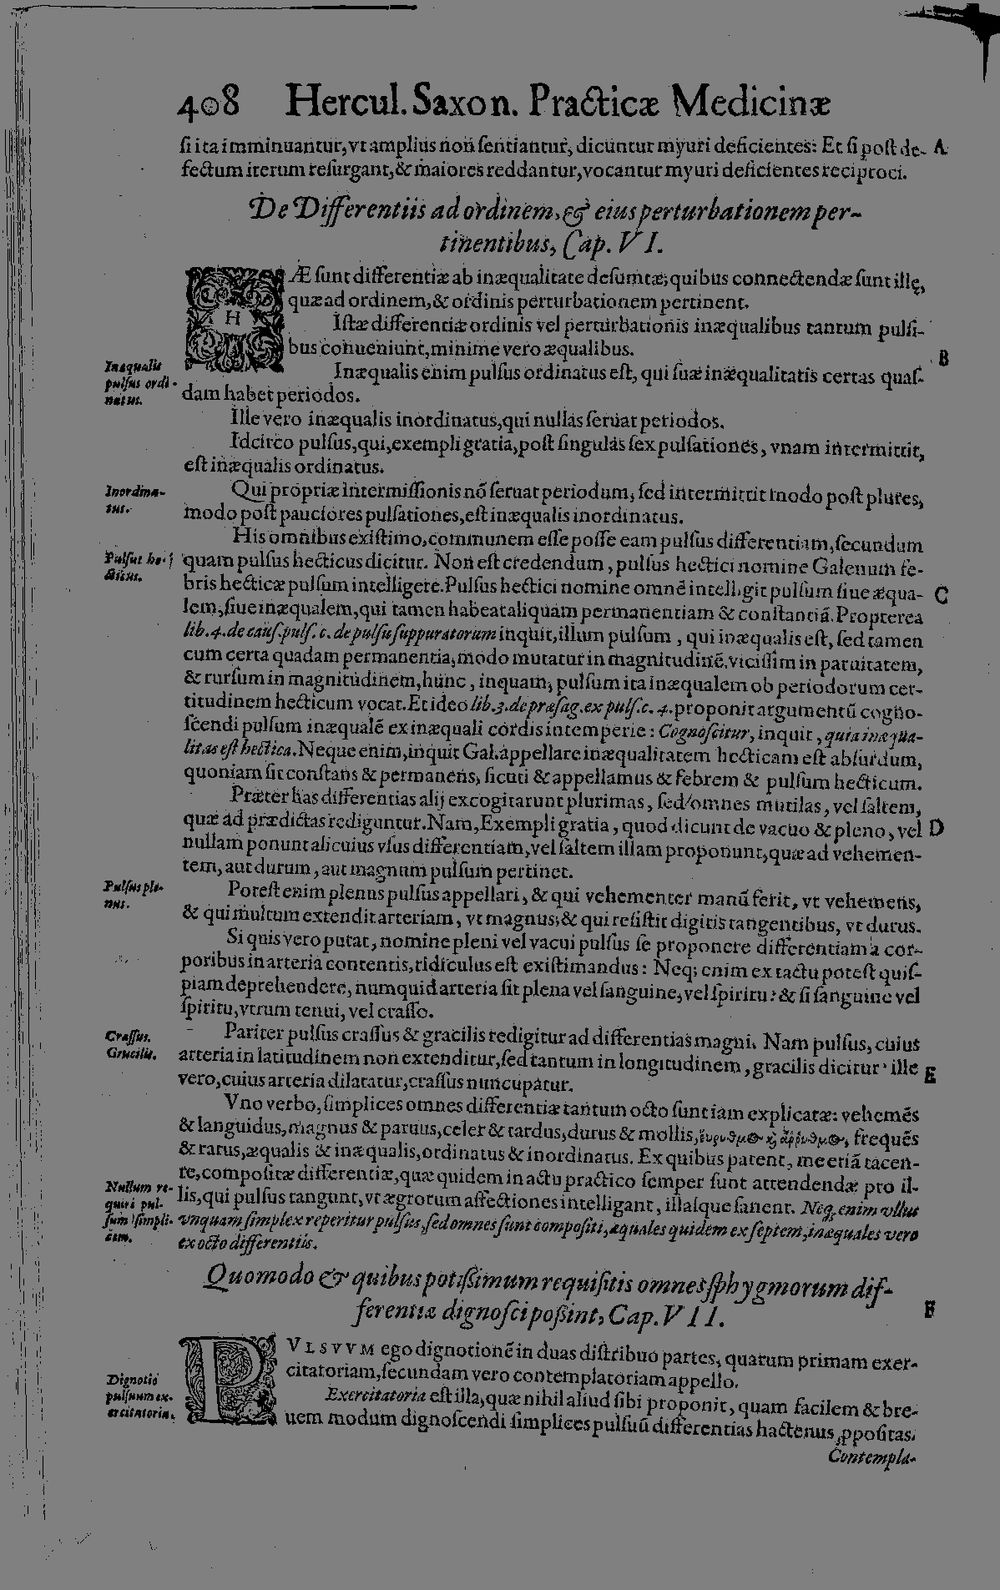 408 Hercul. Saxon. Practicæ Medicinæ
ſi ita imminuantur, vt amplius non ſentiantur, dicuntur myuri deficientes: Et ſi poſt de- A
fectum iterum reſurgant, & maiores reddantur, vocantur myuri deficientes reciproci.
De Differentiis ad ordinem, & eius perturbationem per-
tinentibus, Cap. VI.
HÆ ſunt differentiæ ab inæqualitate deſumtæ; quibus connectendæ ſunt illę,
quæ ad ordinem, & ordinis perturbationem pertinent.
Iſtæ differentiæ ordinis vel perturbationis inæqualibus tantum pulſi-
bus conueniunt, minime vero æqualibus. B
Inæqualis pulſus ordi-natus.
Inæqualis enim pulſus ordinatus eſt, qui ſuæ inæqualitatis certas quaſ-
dam habet periodos.
Ille vero inæqualis inordinatus, qui nullas ſeruat periodos.
Idcirco pulſus, qui, exempli gratia, poſt ſingulas ſex pulſationes, vnam intermittit,
eſt inæqualis ordinatus.
Inordina-tus.
Qui propriæ intermiſſionis nō ſeruat periodum, ſed intermittit modo poſt plures,
modo poſt pauciores pulſationes, eſt inæqualis inordinatus.
His omnibus exiſtimo, communem eſſe poſſe eam pulſus differentiam, ſecundum
Pulſus he-cticus.
quam pulſus hecticus dicitur. Non eſt credendum, pulſus hectici nomine Galenum fe-
bris hecticæ pulſum intelligere. Pulſus hectici nomine omnē intelligit pulſum ſiue æqua- C
lem, ſiue inæqualem, qui tamen habeat aliquam permanentiam & conſtantiā. Propterea
lib. 4. de cauſ. pulſ. c. de pulſu ſuppuratorum inquit, illum pulſum, qui inæqualis eſt, ſed tamen
cum certa quadam permanentia, modo mutatur in magnitudinē, viciſſim in paruitatem,
& rurſum in magnitudinem, hunc, inquam, pulſum ita inæqualem ob periodorum cer-
titudinem hecticum vocat. Et ideo lib. 3. de præſag. ex pulſ. c. 4. proponit argumentū cogno-
ſcendi pulſum inæqualē ex inæquali cordis intemperie: Cognoſcitur, inquit, quia inæqua-
litas eſt hectica. Neque enim, inquit Gal. appellare inæqualitatem hecticam eſt abſurdum,
quoniam ſit conſtans & permanens, ſicuti & appellamus & febrem & pulſum hecticum.
Præter has differentias alij excogitarunt plurimas, ſed omnes mutilas, vel ſaltem,
quæ ad prædictas rediguntur. Nam, Exempli gratia, quod dicunt de vacuo & pleno, vel D
nullam ponunt alicuius vſus differentiam, vel ſaltem illam proponunt, quæ ad vehemen-
tem, aut durum, aut magnum pulſum pertinet.
Pulſus ple-nus.
Poteſt enim plenus pulſus appellari, & qui vehementer manū ferit, vt vehemens,
& qui multum extendit arteriam, vt magnus; & qui reſiſtit digitis tangentibus, vt durus.
Si quis vero putat, nomine pleni vel vacui pulſus ſe proponere differentiam a cor-
poribus in arteria contentis, ridiculus eſt exiſtimandus: Neq; enim ex tactu poteſt quiſ-
piam deprehendere, numquid arteria ſit plena vel ſanguine, vel ſpiritu: & ſi ſanguine vel
ſpiritu, vtrum tenui, vel craſſo.
Craſſus. Gracilis.
Pariter pulſus craſſus & gracilis redigitur ad differentias magni. Nam pulſus, cuius
arteria in latitudinem non extenditur, ſed tantum in longitudinem, gracilis dicitur: ille E
vero, cuius arteria dilatatur, craſſus nuncupatur.
Vno verbo, ſimplices omnes differentiæ tantum octo ſunt iam explicatæ: vehemēs
& languidus, magnus & paruus, celer & tardus, durus & mollis, εὔρυθμος καὶ ἄρρυθμος, frequēs
& rarus, æqualis & inæqualis, ordinatus & inordinatus. Ex quibus patent, me etiā tacen-
te, compoſitæ differentiæ, quæ quidem in actu practico ſemper ſunt attendendæ pro il-
Nullum re-quiri pul-ſum ſimpli-cem.
lis, qui pulſus tangunt, vt ægrotum affectiones intelligant, illaſque ſanent. Neq, enim vllus
vnquam ſimplex reperitur pulſus, ſed omnes ſunt compoſiti, æquales quidem ex ſeptem, inæquales vero
ex octo differentiis.
Quomodo & quibus potiſſimum requiſitis omnes ſphygmorum dif-
ferentiæ dignoſci poſſint, Cap. VII. F
PVLSVVM ego dignotionē in duas diſtribuo partes, quarum primam exer-
citatoriam, ſecundam vero contemplatoriam appello.
Dignotio pulſuum ex-ercitatoria.
Exercitatoria eſt illa, quæ nihil aliud ſibi proponit, quam facilem & bre-
uem modum dignoſcendi ſimplices pulſuū differentias hactenus ꝓpoſitas.
Contempla-